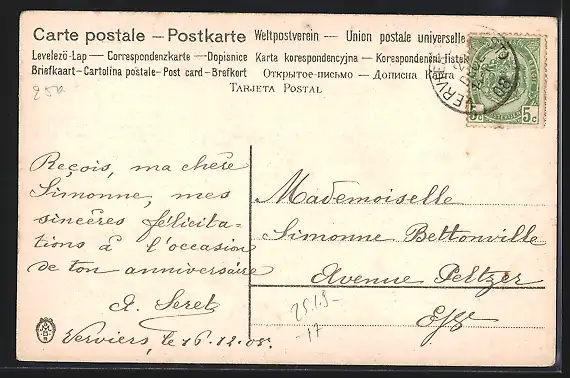 Carte postale – Postkarte Weltpostverein — Union postale universelle
Levelező-Lap — Correspondenzkarte — Dopisnice Karta korespondencyjna — Korespondenční lístek
Briefkaart – Cartolina postale – Post card – Brefkort Открытое письмо — Дописна Карта
Tarjeta Postal
5c 5c
Reçois, ma chère
Simonne, mes
sincères félicita-
tions à l'occasion
de ton anniversaire
Mademoiselle
Simonne Bettonville
Avenue Peltzer
E/V
Verviers, le 16.12.08.